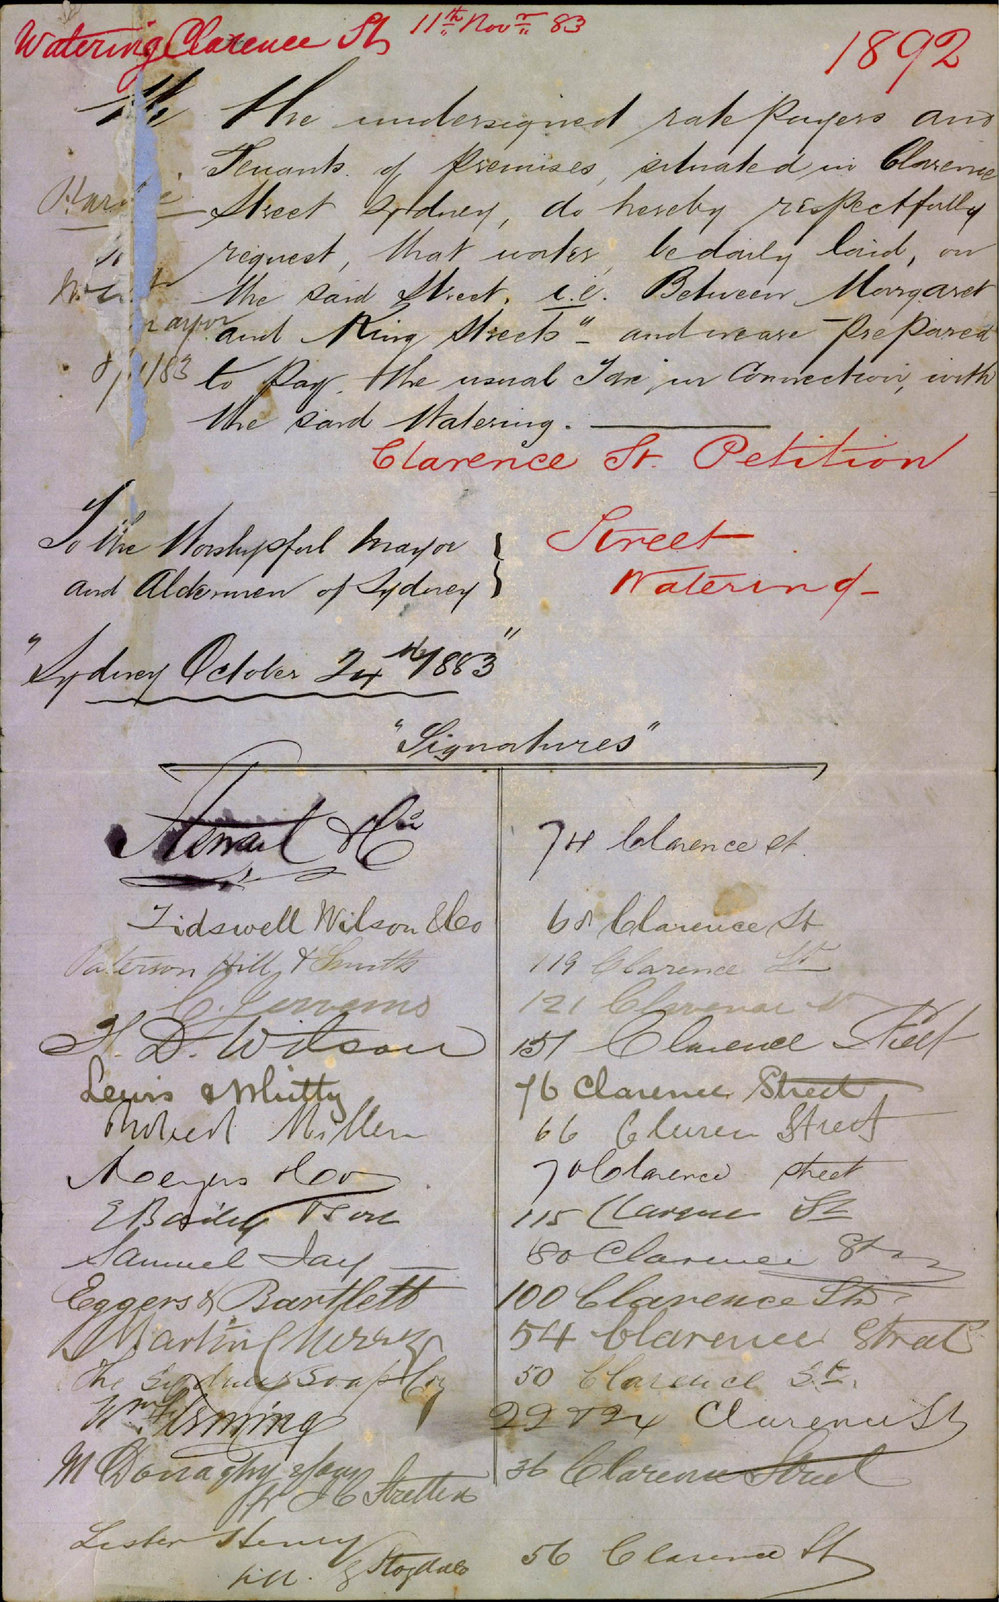 Watering Clarence St 11th Novr 83
1892
We the undersigned ratepayers and
Tenants of Premises, situated in Clarence
Street Sydney, do hereby respectfully
request, that water, be daily laid, on
the said Street, i.e. Between Margaret
and King Streets" - and we are prepared
to pay the usual Tax in Connection, with
the said Watering.
mayor
8/11/83
Clarence St. Petition
To the Worshipful Mayor
and Aldermen of Sydney
Street
Watering
"Sydney October 24th 1883"
"Signatures"
Stewart & Co 74 Clarence St.
Tidswell Wilson & Co 68 Clarence St
Paterson Hill & Smith 119 Clarence St
C. Jerrems 121 Clarence St
H. D. Wilson 151 Clarence Street
Lewis & Whitty 76 Clarence Street
Robert Miller 66 Street
Meyers & Co 70 Clarence Street
E Bailey & Son 115 Clarence St
Samuel Jay 80 Clarence St
Eggers & Bartlett 100 Clarence St
Martin 54 Clarence Street
The Sydney Soap Coy 50 Clarence St.
Wm Fleming 22 & 24 Clarence St
McDonaghy & Sons 36 Clarence Street
Lester Henry 56 Clarence St